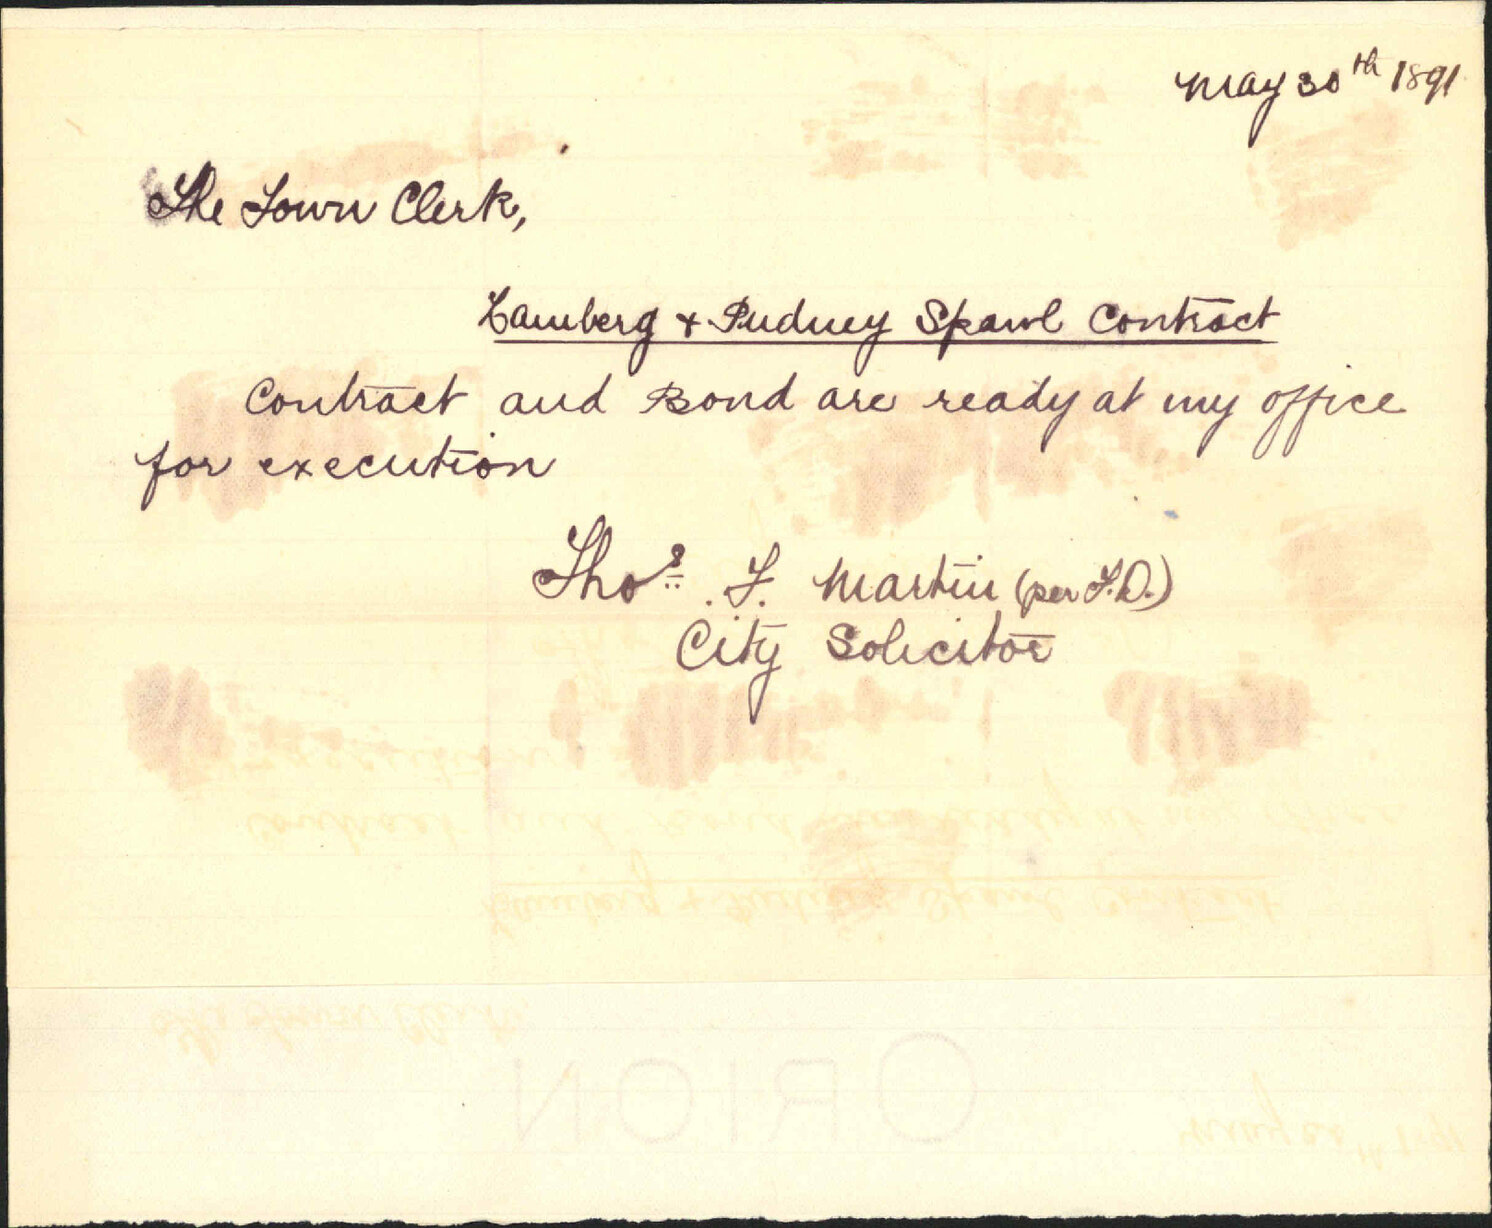 May 30th 1891
The Town Clerk,
Lamberg & Pudney Spawl Contract
Contract and Bond are ready at my office
for execution
Thos. F. Martin (per F.D.)
City Solicitor
ORION